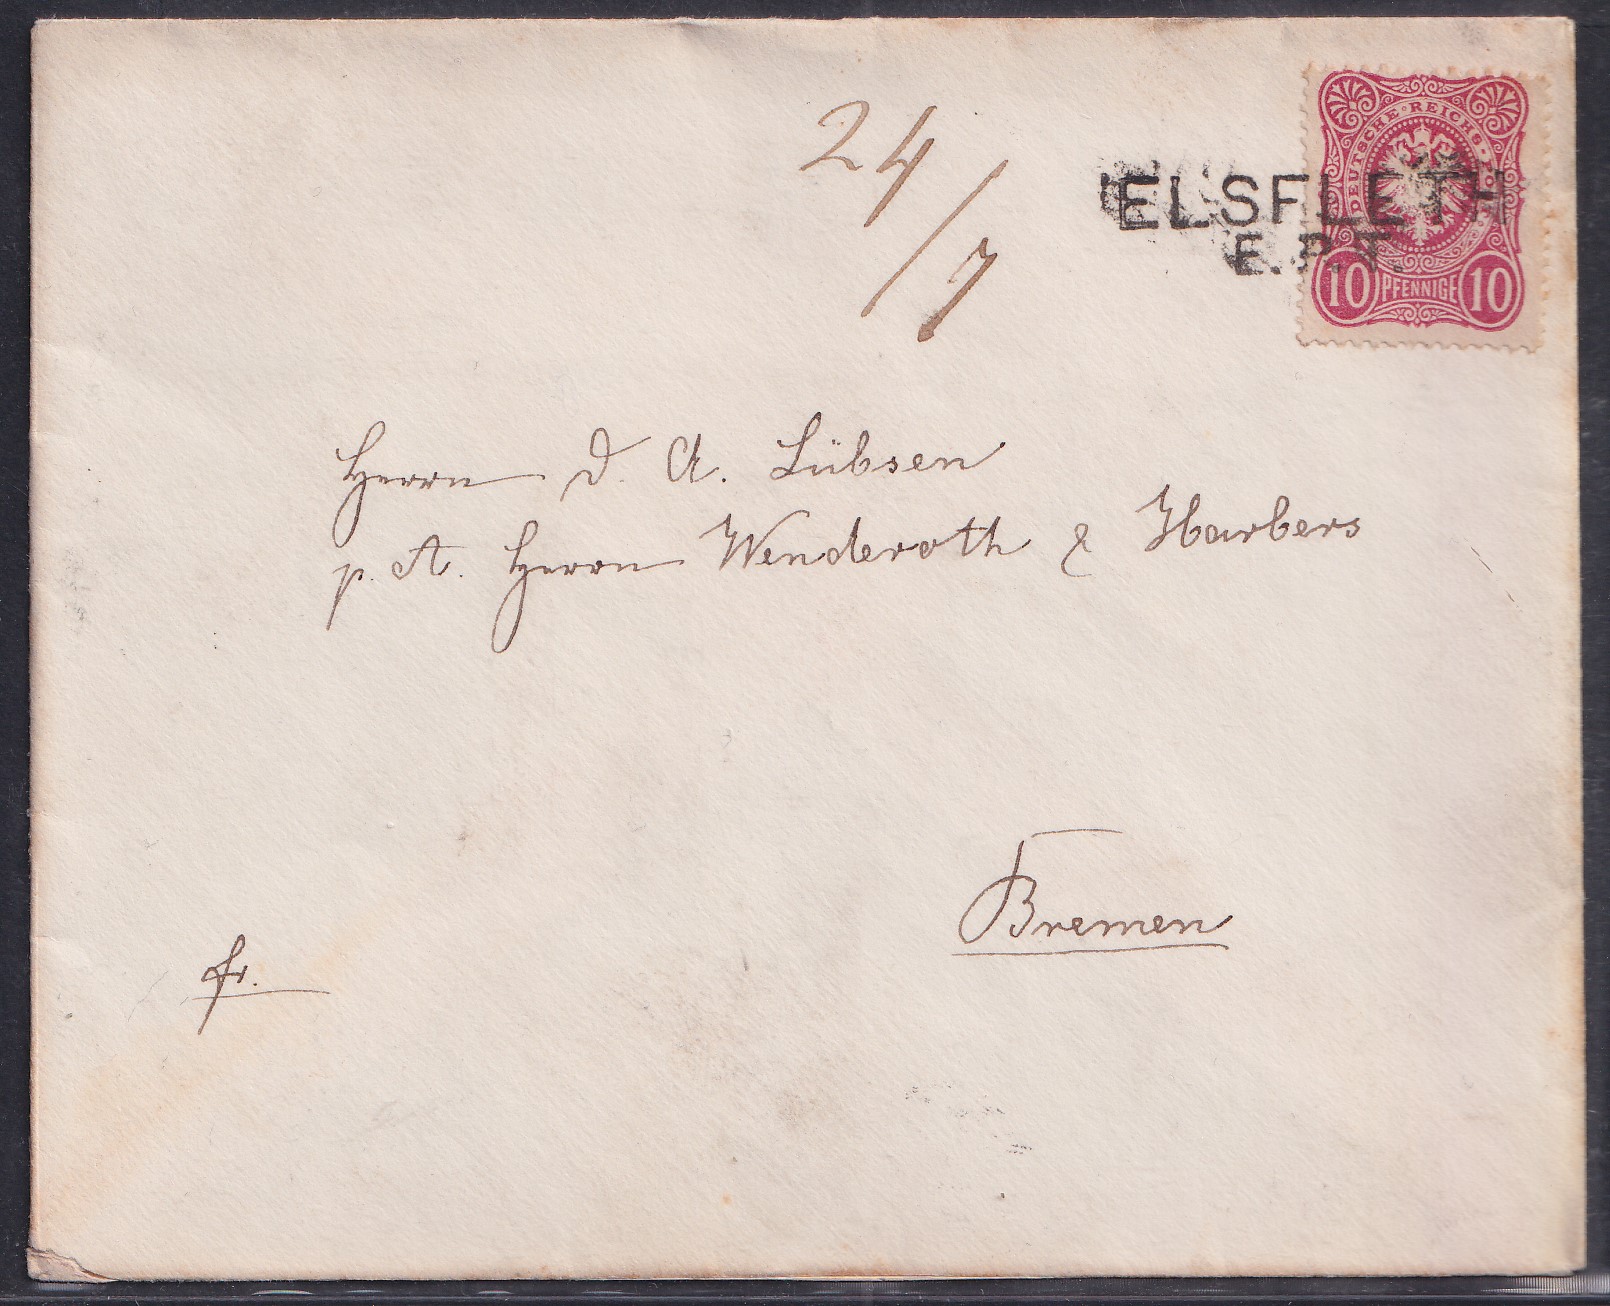 24/7
DEUTSCHE REICHS-POST
ELSFLETH
E.P.T.
10 PFENNIGE 10
Herrn D. A. Lübsen
p. A. Herrn Wenderoth & Harbers
Bremen
fr.